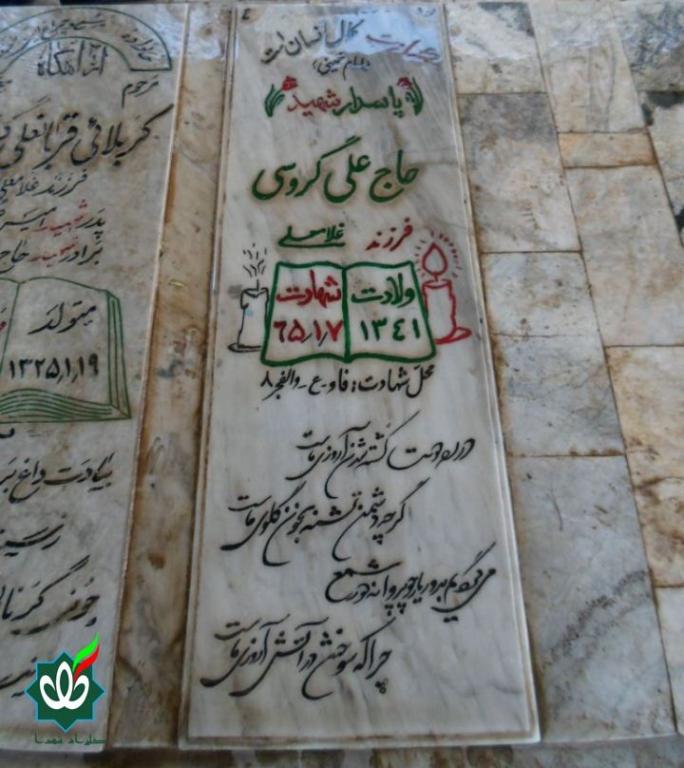 شهادت کمال انسان است
(امام خمینی)
پاسدار شهید
حاج علی گروسی
فرزند غلامعلی
ولادت ۱۳۴۱
شهادت ۶۵/۱/۷
محل شهادت: فاو-ع-والفجر ۸
در ره دوست کشته شدن آرزوی ماست
گرچه دشمن تشنه بخون گلوی ماست
می‌گردیم بدور یار چو پروانه دور شمع
چرا که سوختن در آتش آرزوی ماست
آرامگاه
مرحوم
کربلائی قربانعلی
فرزند غلامعلی
پدر شهید
برادر شهید حاج
متولد
۱۳۲۵/۱/۱۹
بیادت داغ بر